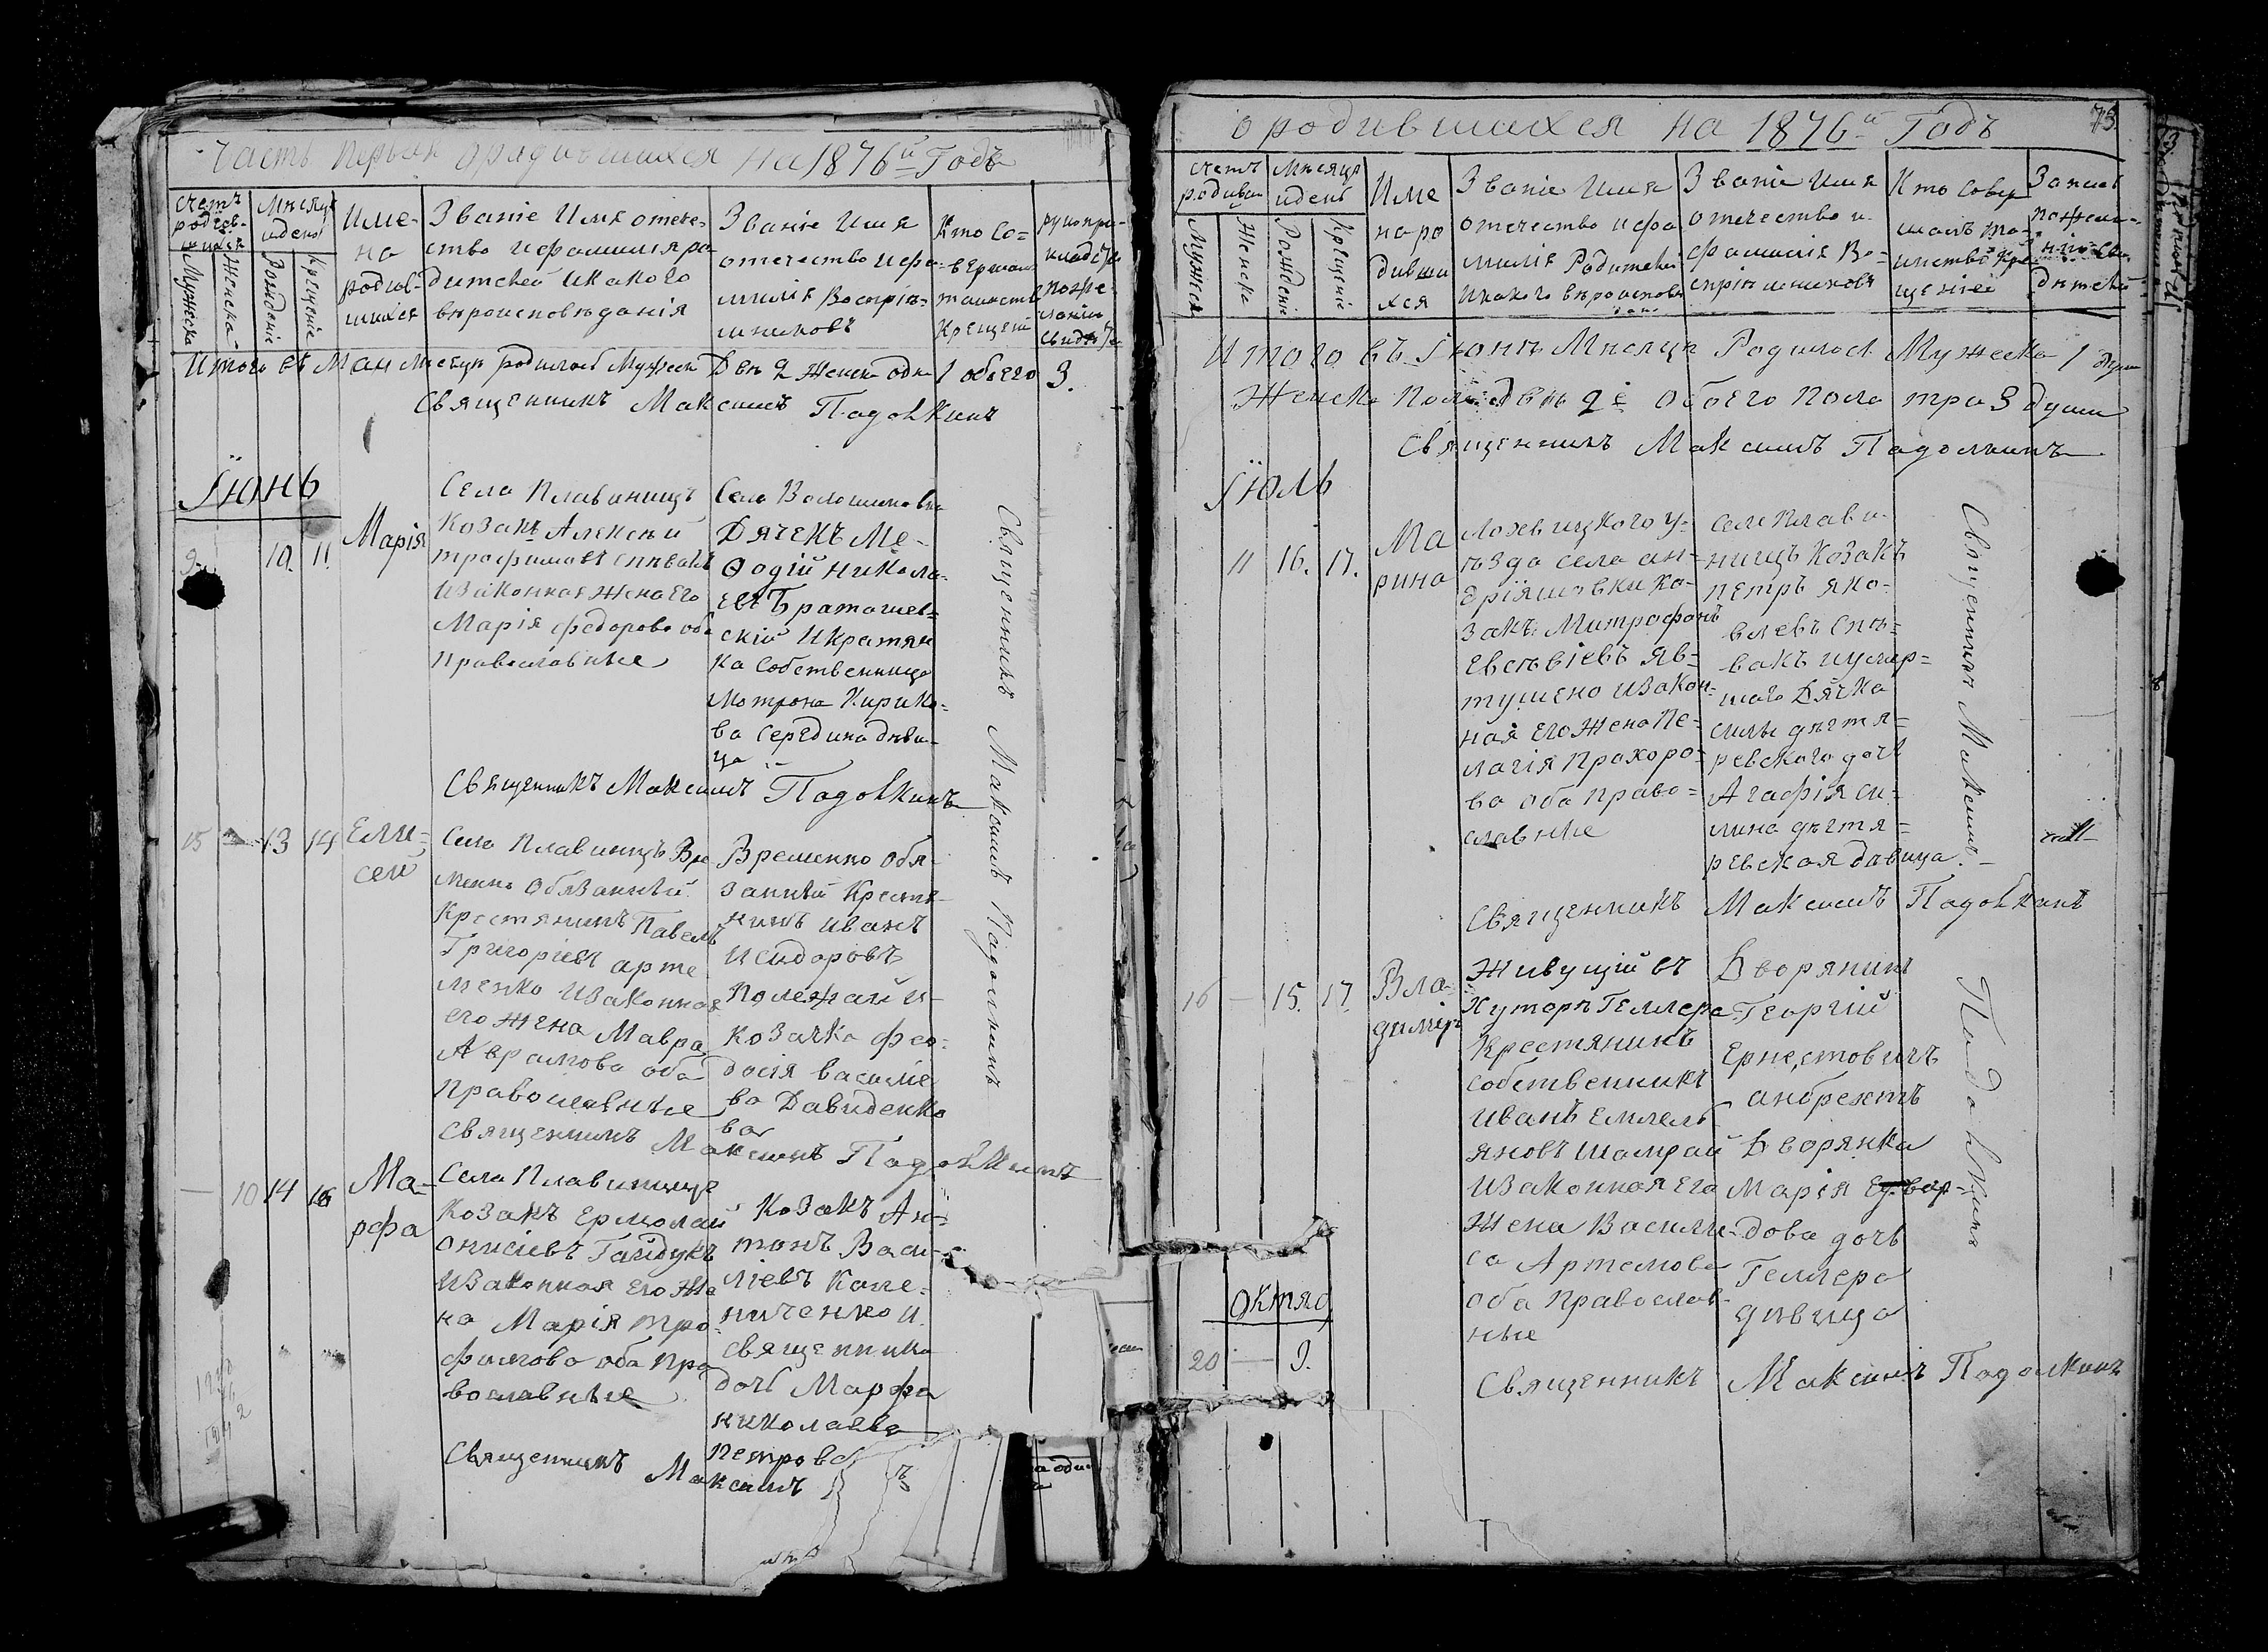 Часть Первая ородившихся на 1876й Годъ
Счетъ родив-шихся
Мужеска
Женска
Мѣсяцъ идень
Рожденіе
Крещеніе
Име-
на
родив-
шихся
Званіе Имя отече-
ство ифамилія ро-
дителей икакого
вѣроисповѣданія
Званіе Имя
отечество ифа-
милія Воспріе-
мниковъ
Кто Со-
вершал
таинство
Крещенія
рукопри-
кладство
Итого въ Маи Месецѣ родилось Мужеск Двѣ 2 Женска одна 1 обоего 3.
Священникъ Максимъ Падолкинъ
Іюнь
10. 11.
Марія
Села Плавинищъ
Козакъ Алексѣй
трофимовъ Спѣвакъ
Изаконная Жена Его
Марія федорова оба
Православные
Села Волошиновки
Дячекъ Ме-
ѳодій никола-
евъ Браташев-
скій Икрстян
ка Собственница
Мотрона Кирико-
ва Середина дѣви-
ца
Священникъ Максимъ Падолкинъ
Священникъ Максимъ Падолкинъ
15 — 13 14
Ели-
сей
Села Плавинищъ Вре
менно Обязанный
Крестянинъ Павелъ
Григоріевъ арте
менко Изаконная
его жена Мавра
Аврамова оба
Православные
Временно Обя-
занный Крестя-
нинъ Иванъ
Исидоровъ
Полежай и
Козачка Фео-
досія василіе
ва Давиденко
ва
Священникъ Максимъ Падолкинъ
— 10 14 16
Ма-
рфа
Села Плавинищъ
Козакъ Ермолай
Онисіевъ Гайдукъ
Изаконная Его Же
на Марія тро-
фимова оба Пра
вославные
Козакъ Ан-
тонъ Васи-
ліевъ Капе-
ниченко и
священника
дочь Марфа
николаева
Петрова
Священникъ Максимъ
ородившихся на 1876й Годъ
73
Счетъ родивш
Мужеска
Женска
Мѣсяцъ идень
Рожденіе
Крещеніе
Име
на ро
дивши
хся
Званіе Имя
отечество ифа
милія Родителей
Икакого вѣроисповѣ
дані
Званіе Имя
отечество и
фамилія Во-
спріемниковъ
Кто Совер
шалъ та-
инство Кре
щенія
Запись
Итого въ Іюнѣ Мисяцѣ Родилось Мужеска 1 душа
Женска Пола двѣ 2ѣ Обоего Пола три 3 души
Священникъ Максимъ Падолкинъ
Іюль
11 16. 17.
Ма
рина
Лохвицкого у-
ѣзда села ан-
дріяшовки Ко-
закъ Митрофанъ
Евсѣвіевъ Яв-
тушено Изакон-
ная Его Жена Пе-
лагія Прохоро-
ва оба Право-
славные
Села Плави-
нищъ Козакъ
петръ яко-
влевъ Спѣ-
вакъ иумер-
шаго Дячка
силы дѣгтя-
ревского дочь
Агафія си-
лина дѣгтя-
ревская дѣвица.
Священникъ Максимъ Падолкинъ
Священникъ Максимъ Падолкинъ
16 — 15. 17.
Вла
димир
Живущій въ
Хуторѣ Геллера
Крестянинъ
собственникъ
Иванъ Емлель
яновъ Шамрай
Изаконная Его
Жена Васили-
са Артемова
оба Православ
ные
Дворянинъ
Георгій
Ернестовичъ
анбрехтъ
Дворянка
Марія Едвар-
дова дочь
Геллера
дѣвица
Октяб
20 — 9.
Священникъ Максимъ Падолкинъ